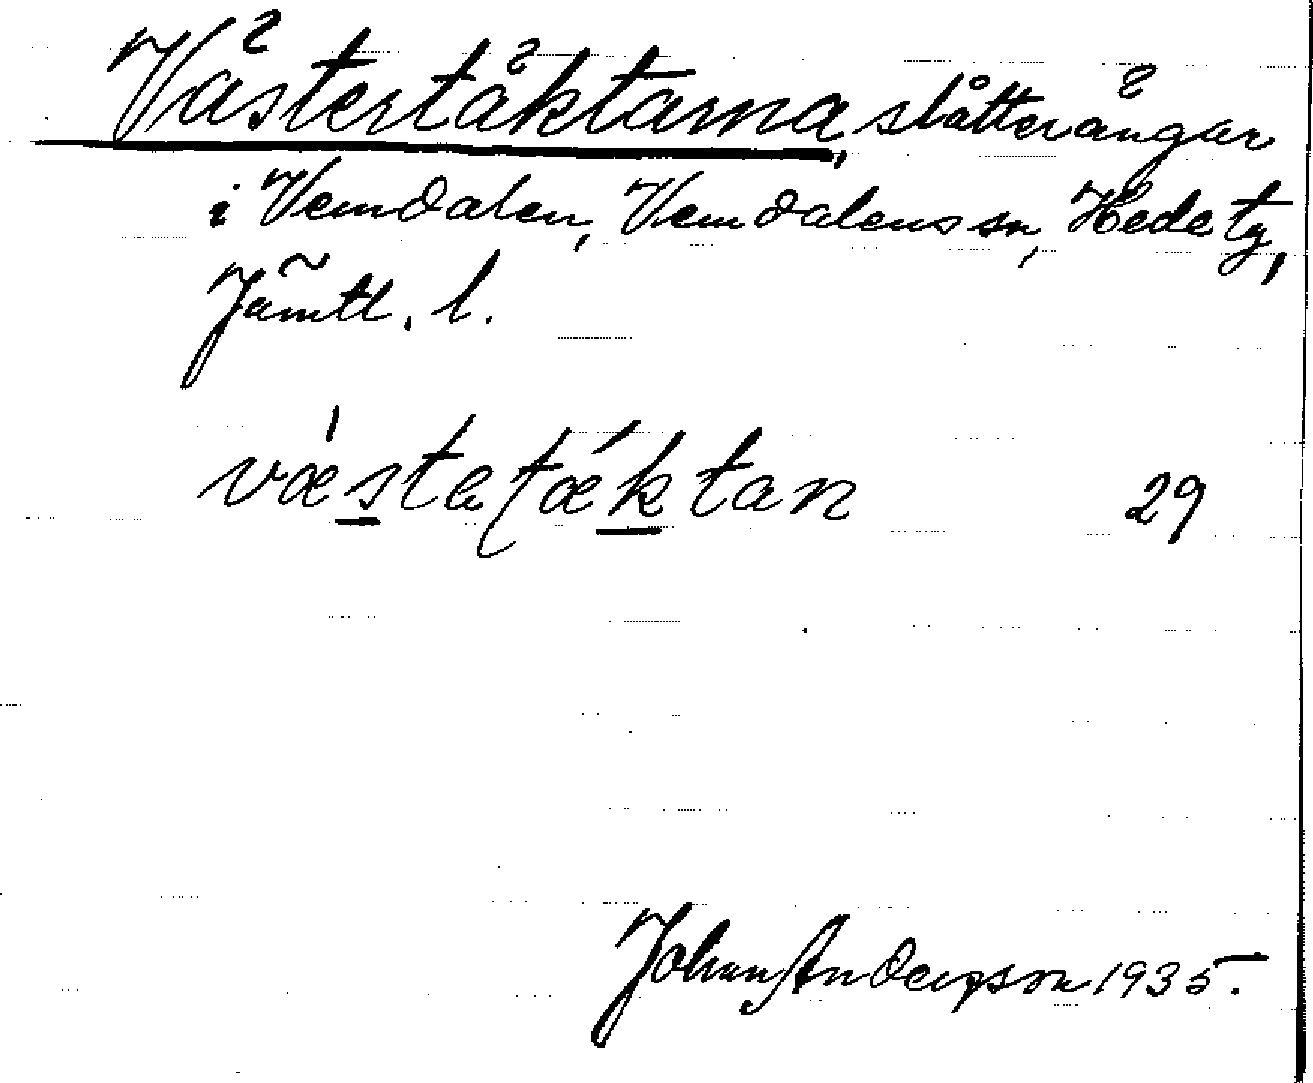 Västertäktarna, slåtterängar
i Vemdalen, Vemdalens sn, Hede tg,
Jämtl. l.
væstatæktan 29
Johan Anderson 1935.